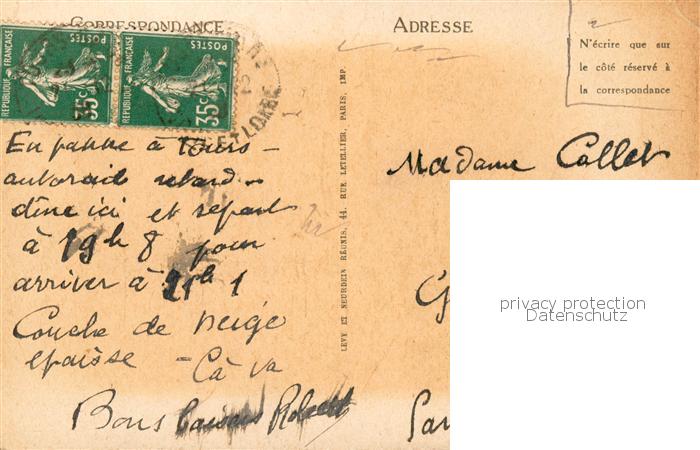 CORRESPONDANCE
ADRESSE
N'écrire que sur
le côté réservé à
la correspondance
POSTES
REPUBLIQUE FRANÇAISE
35c
POSTES
REPUBLIQUE FRANÇAISE
35c
ET-LOIRE
En panne à Tours -
autorail retard -
dîne ici et repart
à 19h 8 pour
arriver à 21h 1
Couche de neige
épaisse - Ca va
Bons baisers Robert
LEVY ET NEURDEIN RÉUNIS, 44, RUE LETELLIER, PARIS, IMP.
Madame Collet
privacy protection
Datenschutz